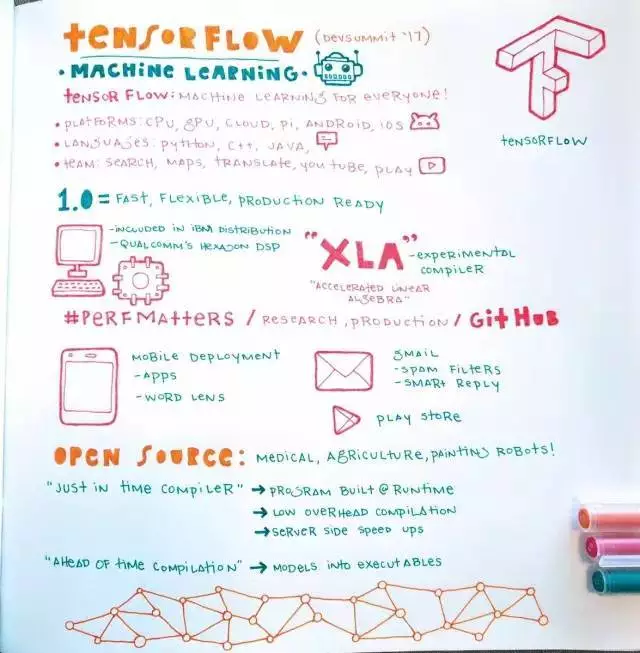 tensorflow (DevSummit '17)
• MACHINE LEARNING •
tensor flow: MACHINE LEARNING FOR everyone!
• PLATFORMS: CPU, GPU, CLOUD, Pi, ANDROID, iOS
• LANGUAGES: PYTHON, C++, JAVA,
• teAM: SEARCH, MAPS, TRANSLATE, YOU TUBE, PLAY
tensorflow
1.0 = FAST, FLEXIBLE, PRODUCTION READY
- INCLUDED IN IBM DISTRIBUTION
- QUALCOMM'S HEXAGON DSP
"XLA" - experimental
compiler
"ACCELERATED LINEAR
ALGEBRA"
#PERFMATTERS / RESEARCH, PRODUCTION / GitHUB
MOBILE DEPLOYMENT
- APPS
- WORD LENS
GMAIL
- SPAM FILTERS
- SMART REPLY
PLAY STORE
OPEN SOURCE: MEDICAL, AGRICULTURE, PAINTING ROBOTS!
"JUST IN TIME COMPILER" → PROGRAM BUILT @ RUNTIME
→ LOW OVERHEAD COMPILATION
→ SERVER SIDE SPEED UPS
"AHEAD OF TIME COMPILATION" → MODELS INTO EXECUTABLES